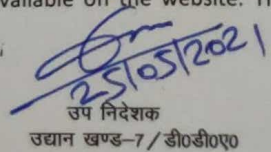 vailable on the website. T
25/05/2021
उप निदेशक
उद्यान खण्ड–7/डी0डी0ए0